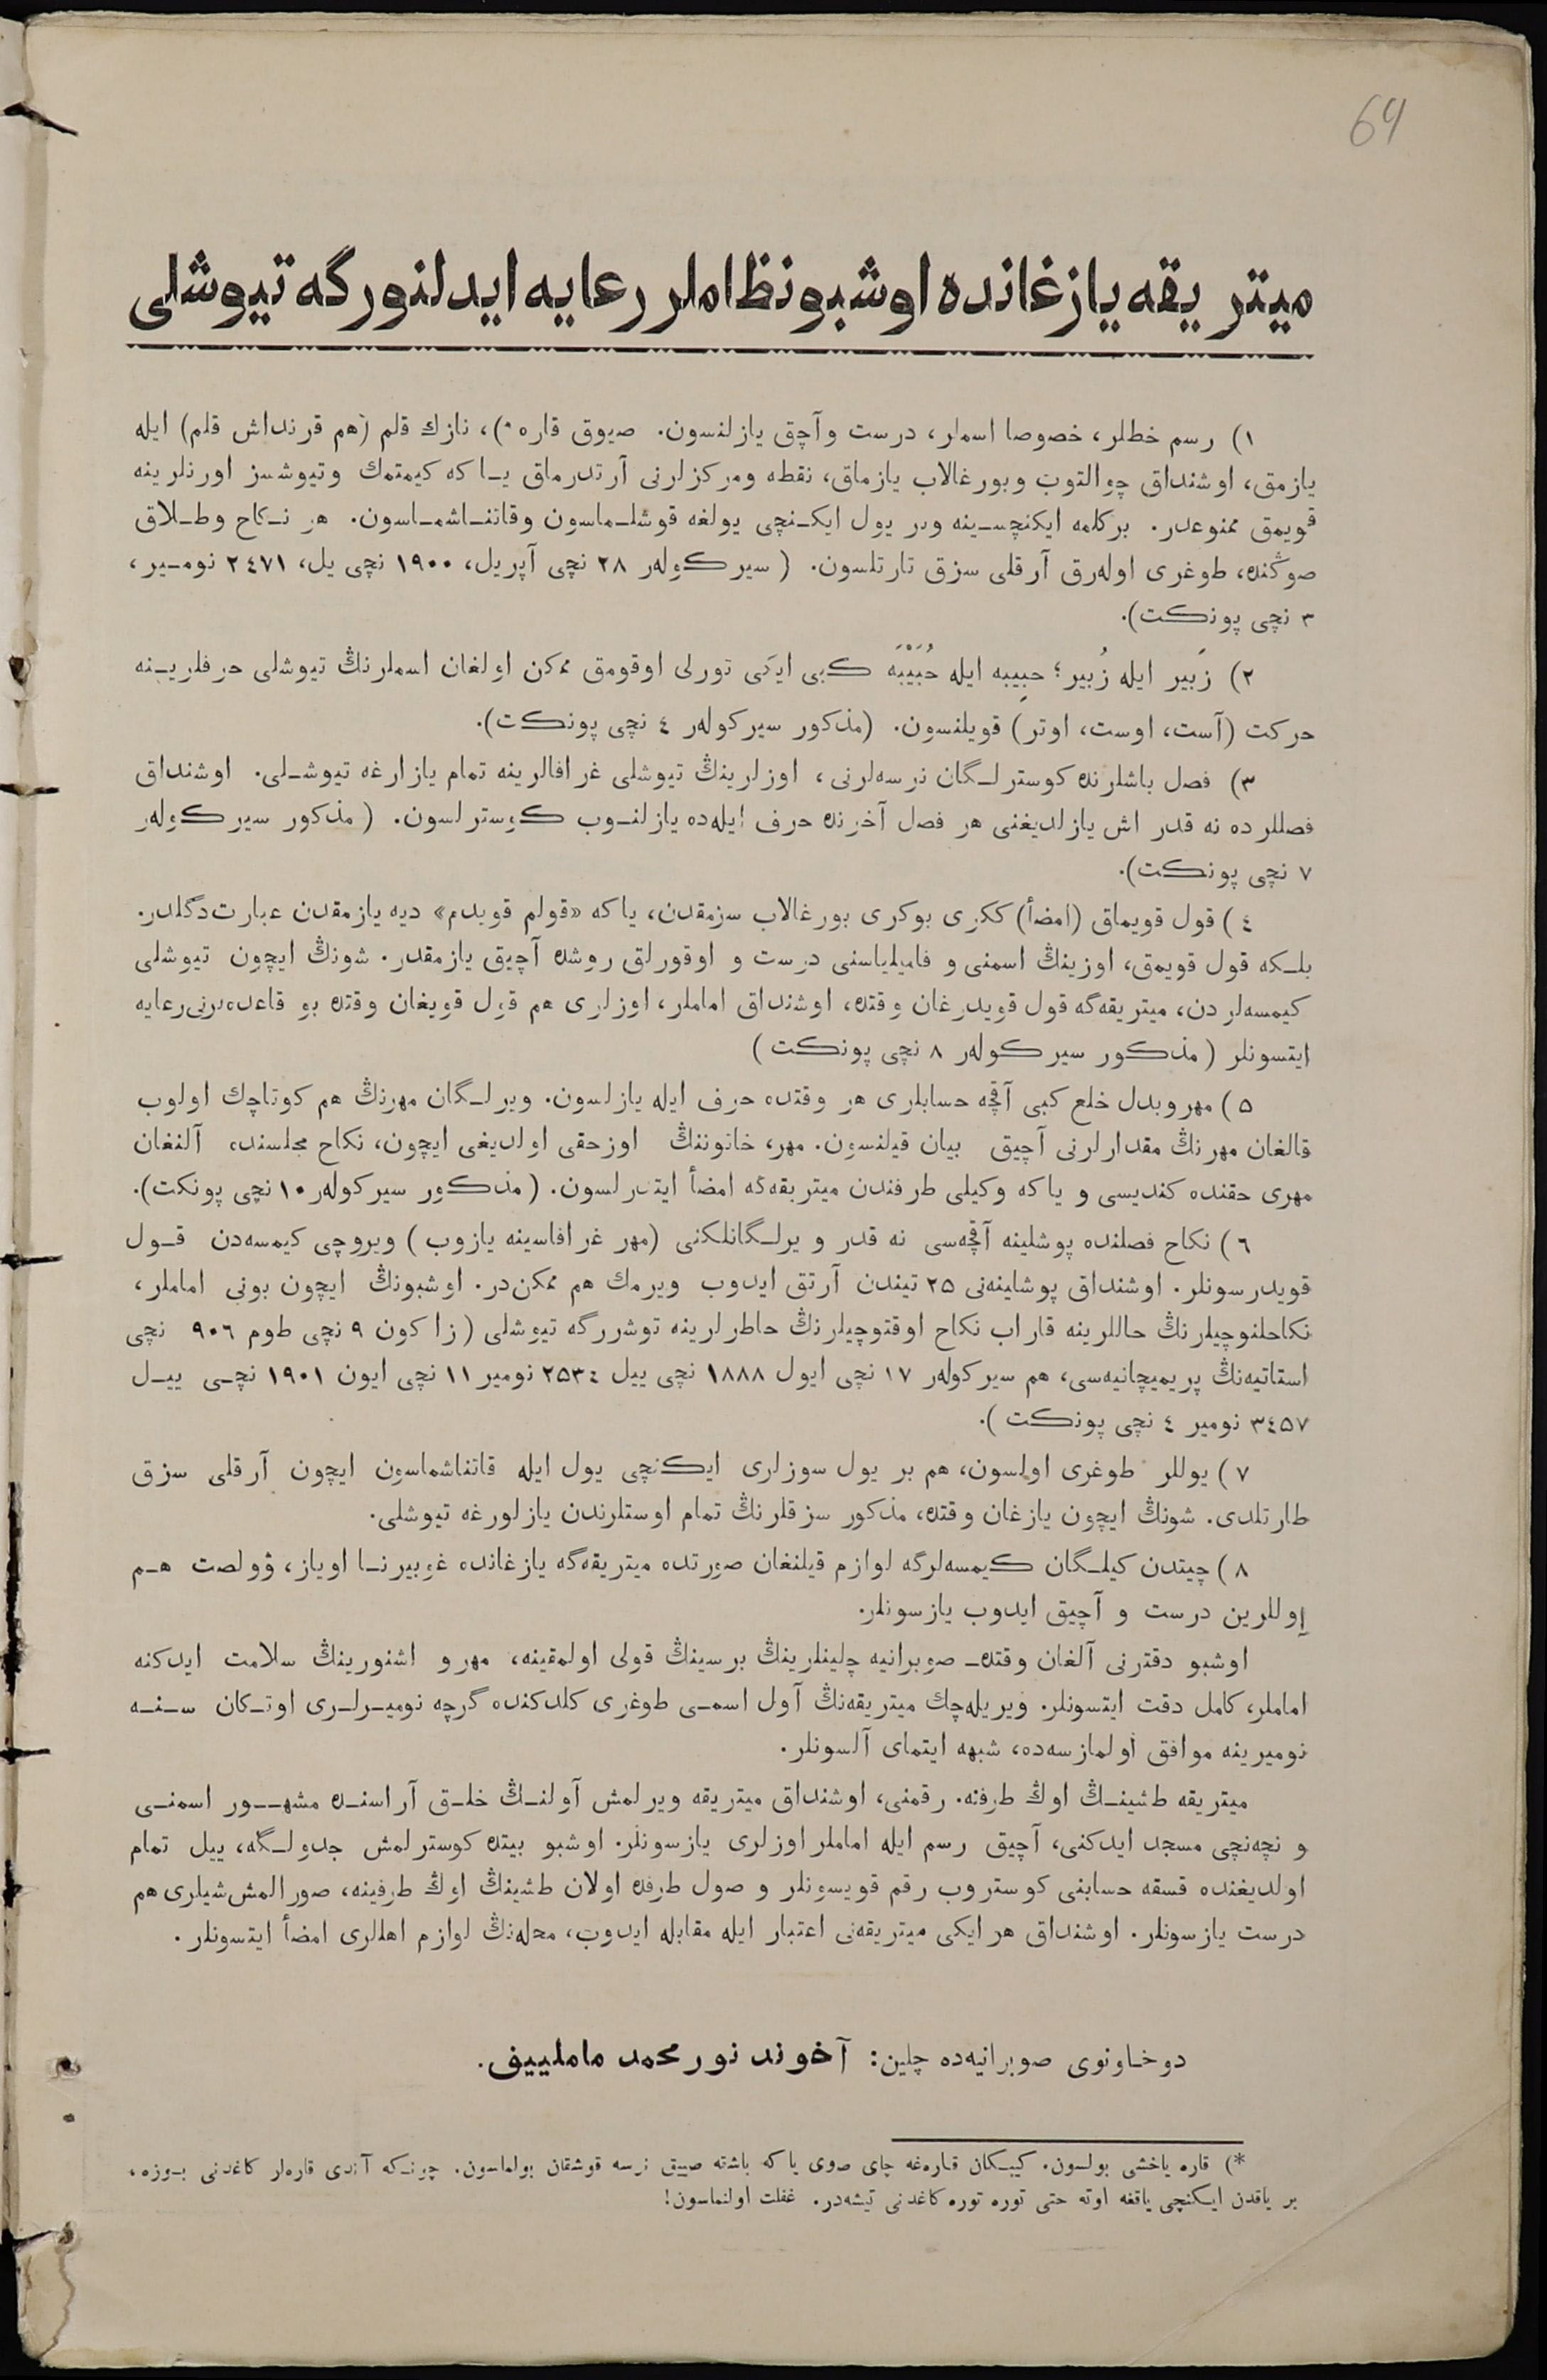 64
میتریقه یازغانده اوشبو نظاملر رعایه ایدلنورگه تیوشلی
١) رسم خطلر، خصوصا اسملر، درست و آچق یازلنسون. صیوق قاره *)، نازك قلم (هم قرنداش قلم) ایله
یازمق، اوشنداق چوالتوب وبورغالاب یازماق، نقطه ومركزلرنی آرتدرماق یـاكه كیمتمك وتیوشسز اورنلرینه
قویمق ممنوعدر. بركلمه ایكنچسـینه وبر یول ایكـنچی یولغه قوشلـماسون وقاتنـاشمـاسون. هر نـكاح وطـلاق
صوڭنده، طوغری اوله‌رق آرقلی سزق تارتلسون. (سیركوله‌ر ٢٨ نچی آپریل، ١٩٠٠ نچی یل، ٢٤٧١ نومـیر،
٣ نچی پونكت).
٢) زَبیر ایله زُبیر؛ حبِیبه ایله حُبَیْبَه كبی ایكی تورلی اوقومق ممكن اولغان اسملرنڭ تیوشلی حرفلریـنه
حركت (آست، اوست، اوتر) قویلنسون. (مذكور سیركوله‌ر ٤ نچی پونكت).
٣) فصل باشلرنده كوسترلـگان نرسه‌لرنی، اوزلرینڭ تیوشلی غرافالرینه تمام یازارغه تیوشـلی. اوشنداق
فصللرده نه قدر اش یازلدیغنی هر فصل آخرنده حرف ایله‌ده یازلنـوب كوسترلسون. (مذكور سیركوله‌ر
٧ نچی پونكت).
٤) قول قویماق (امضأ) ككری بوكری بورغالاب سزمقدن، یاكه «قولم قویدم» دیه یازمقدن عبارت دگلدر.
بلـكه قول قویمق، اوزینڭ اسمنی و فامیلیاسنی درست و اوقورلق روشده آچیق یازمقدر. شونڭ ایچون تیوشلی
كیمسه‌لردن، میتریقه‌گه قول قویدرغان وقتده، اوشنداق اماملر، اوزلری هم قول قویغان وقتده بو قاعده‌لرنی رعایه
ایتسونلر (مذكور سیركوله‌ر ٨ نچی پونكت)
٥) مهر وبدل خلع كبی آقچه حسابلری هر وقتده حرف ایله یازلسون. ویرلـگان مهرنڭ هم كوتاچك اولوب
قالغان مهرنڭ مقدارلرنی آچیق بیان قیلنسون. مهر، خاتوننڭ اوزحقی اولدیغی ایچون، نكاح مجلسنده آلنغان
مهری حقنده كندیسی و یاكه وكیلی طرفندن میتریقه‌گه امضأ ایتدرلسون. (مذكور سیركوله‌ر ١٠ نچی پونكت).
٦) نكاح فصلنده پوشلینه آقچه‌سی نه قدر ویرلـگانلكنی (مهر غرافاسینه یازوب) ویروچی كیمسه‌دن قـول
قویدرسونلر. اوشنداق پوشلینه‌نی ٢٥ تیندن آرتق ایدوب ویرمك هم ممكن‌در. اوشبونڭ ایچون بونی اماملر،
نكاحلنوچیلرنڭ حاللرینه قاراب نكاح اوقتوچیلرنڭ خاطرلرینه توشررگه تیوشلی (زاكون ٩ نچی طوم ٩٠٦ نچی
استاتیه‌نڭ پریمیچانیه‌سی، هم سیركوله‌ر ١٧ نچی ایول ١٨٨٨ نچی ییل ٢٥٣٤ نومیر ١١ نچی ایون ١٩٠١ نچـی ییـل
٣٤٥٧ نومیر ٤ نچی پونكت).
٧) یوللر طوغری اولسون، هم بر یول سوزلری ایكنچی یول ایله قاتناشماسون ایچون آرقلی سزق
طارتلدی. شونڭ ایچون یازغان وقتده، مذكور سزقلرنڭ تمام اوستلرندن یازلورغه تیوشلی.
٨) چیتدن كیلـگان كیمسه‌لرگه لوازم قیلنغان صورتده میتریقه‌گه یازغانده غوبیرنـا اویاز، وولصت هـم
اِوللرین درست و آچیق ایدوب یازسونلر.
اوشبو دفترنی آلغان وقتده صوبرانیه چلینلرینڭ برسینڭ قولی اولمقینه، مهرو اشنورینڭ سلامت ایدكنه
اماملر، كامل دقت ایتسونلر. ویریله‌چك میتریقه‌نڭ آول اسمـی طوغری كلدكنده گرچه نومیـرلـری اوتـكان سـنـه
نومیرینه موافق اولمازسه‌ده، شبهه ایتمای آلسونلر.
میتریقه طشینـڭ اوڭ طرفنه رقمنی، اوشنداق میتریقه ویرلمش آولنـڭ خلـق آراسنـده مشهـور اسمنـی
و نچه‌نچی مسجد ایدكنی، آچیق رسم ایله اماملر اوزلری یازسونلر. اوشبو بیتده كوسترلمش جدولـگه، ییل تمام
اولدیغنده قسقه حسابنی كوستروب رقم قویسونلر و صول طرفده اولان طشینڭ اوڭ طرفینه، صورالمش شیلری هم
درست یازسونلر. اوشنداق هر ایكی میتریقه‌نی اعتبار ایله مقابله ایدوب، محله‌نڭ لوازم اهللری امضأ ایتسونلر.
دوخاونوی صوبرانیه‌ده چلین: آخوند نورمحمد ماملییف.
*) قاره یاخشی بولسون. كیبـكان قاره‌غه چای صوی یاكه باشته صییق نرسه قوشقان بولماسون. چونـكه آندی قاره‌لر كاغدنی بـوزه،
بر یاقدن ایـكنچی یاقغه اوته حتی توره توره كاغدنی تیشه‌در. غفلت اولنماسون!